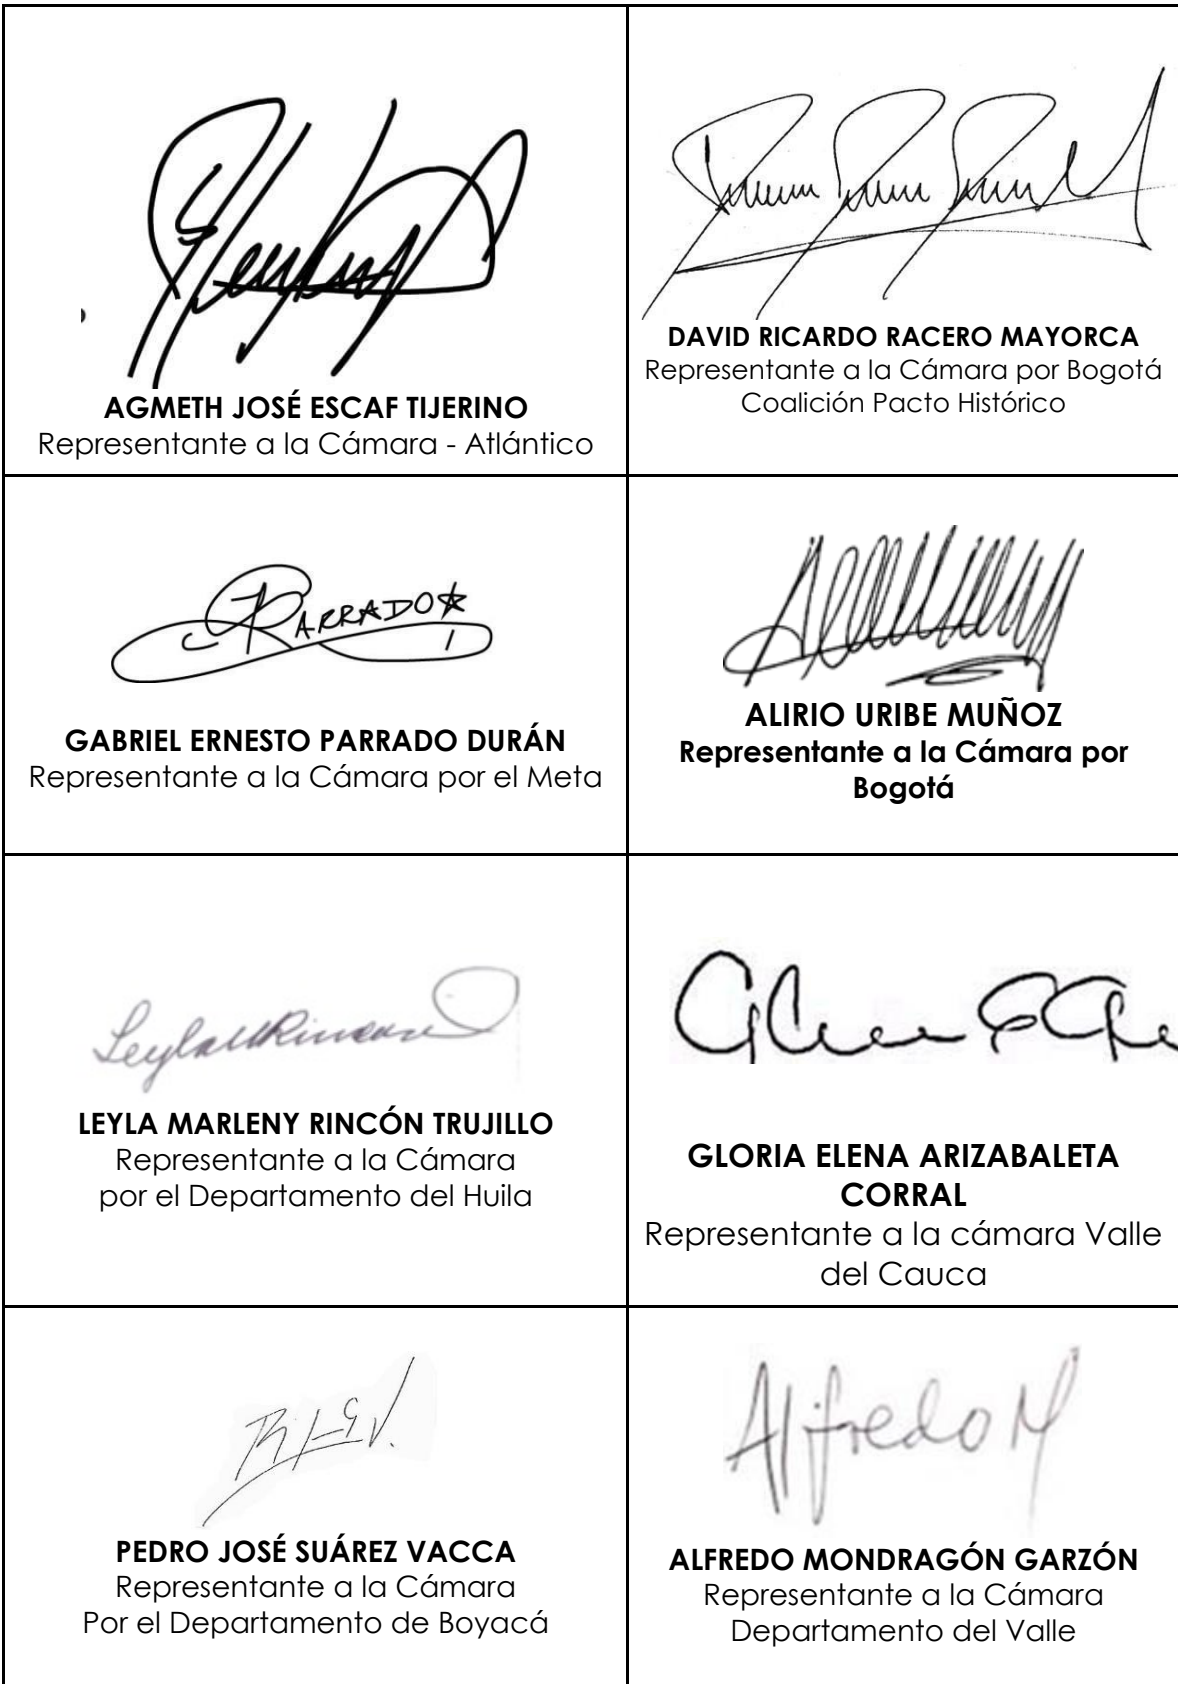 AGMETH JOSÉ ESCAF TIJERINO
Representante a la Cámara - Atlántico
DAVID RICARDO RACERO MAYORCA
Representante a la Cámara por Bogotá
Coalición Pacto Histórico
PARRADO
GABRIEL ERNESTO PARRADO DURÁN
Representante a la Cámara por el Meta
ALIRIO URIBE MUÑOZ
Representante a la Cámara por
Bogotá
LeylaMRincon
LEYLA MARLENY RINCÓN TRUJILLO
Representante a la Cámara
por el Departamento del Huila
GLORIA ELENA ARIZABALETA
CORRAL
Representante a la cámara Valle
del Cauca
PEDRO JOSÉ SUÁREZ VACCA
Representante a la Cámara
Por el Departamento de Boyacá
Alfredo M
ALFREDO MONDRAGÓN GARZÓN
Representante a la Cámara
Departamento del Valle